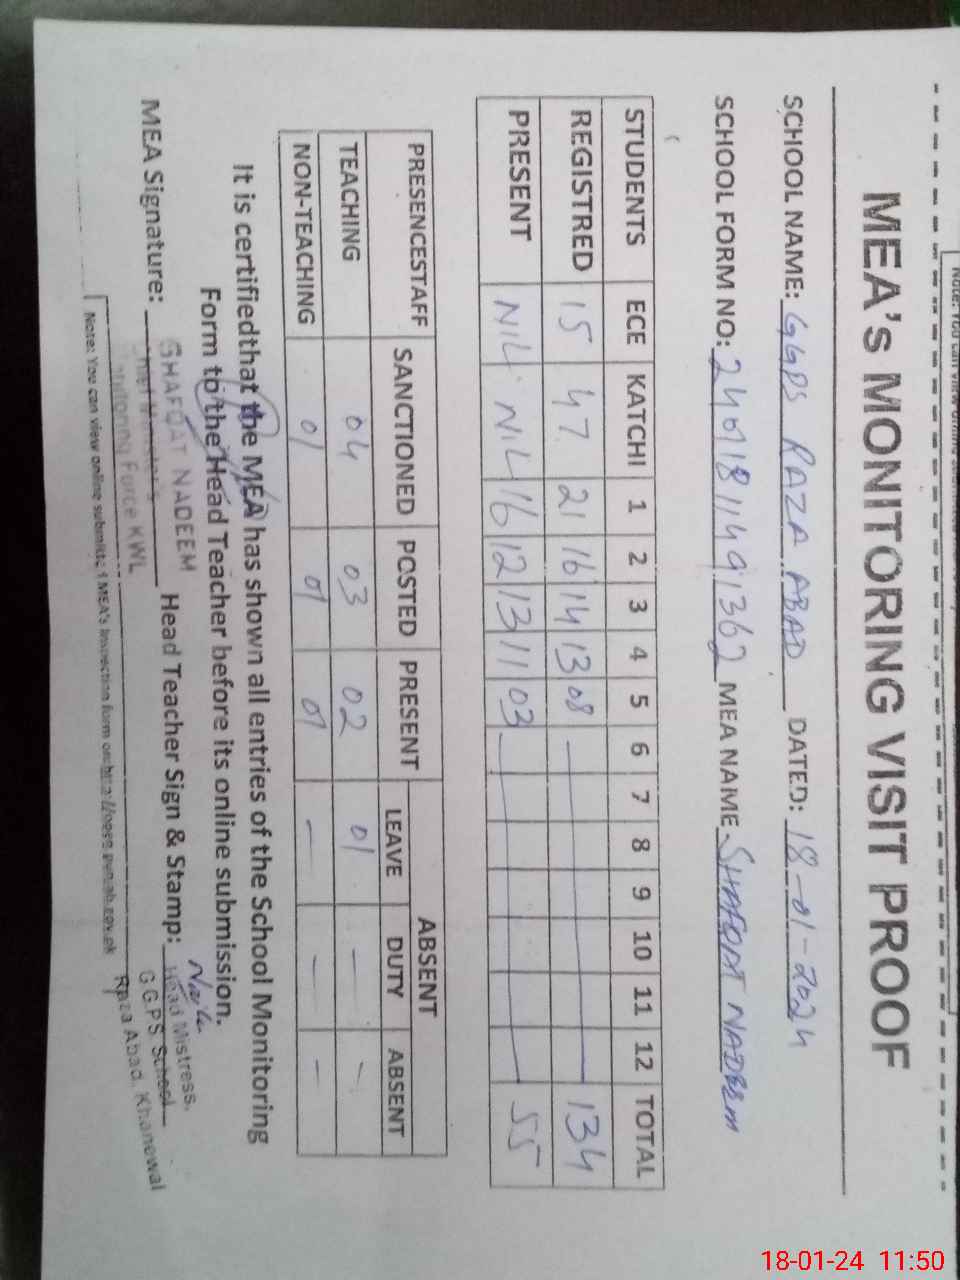 MEA'S MONITORING VISIT PROOF
SCHOOL NAME: GGPS RAZA ABAD DATED: 18-01-2024
SCHOOL FORM NO: 2401811491362 MEA NAME SHAFQAT NADEEM
STUDENTS ECE KATCHI 1 2 3 4 5 6 7 8 9 10 11 12 TOTAL
REGISTRED 15 47 21 16 14 13 08 134
PRESENT NIL NIL 16 12 13 11 03 55
PRESENCESTAFF SANCTIONED POSTED PRESENT ABSENT
LEAVE DUTY ABSENT
TEACHING 04 03 02 01 — —
NON-TEACHING 01 01 01 — — —
It is certifiedthat the MEA has shown all entries of the School Monitoring
Form to the Head Teacher before its online submission.
MEA Signature: Head Teacher Sign & Stamp:
SHAFQAT NADEEM
Chief Minister's
Monitoring Force KWL
Head Mistress.
G.G.P.S School
Raza Abad. Khanewal
Note: You can view online submitted MEA's Inspection form on:
18-01-24 11:50